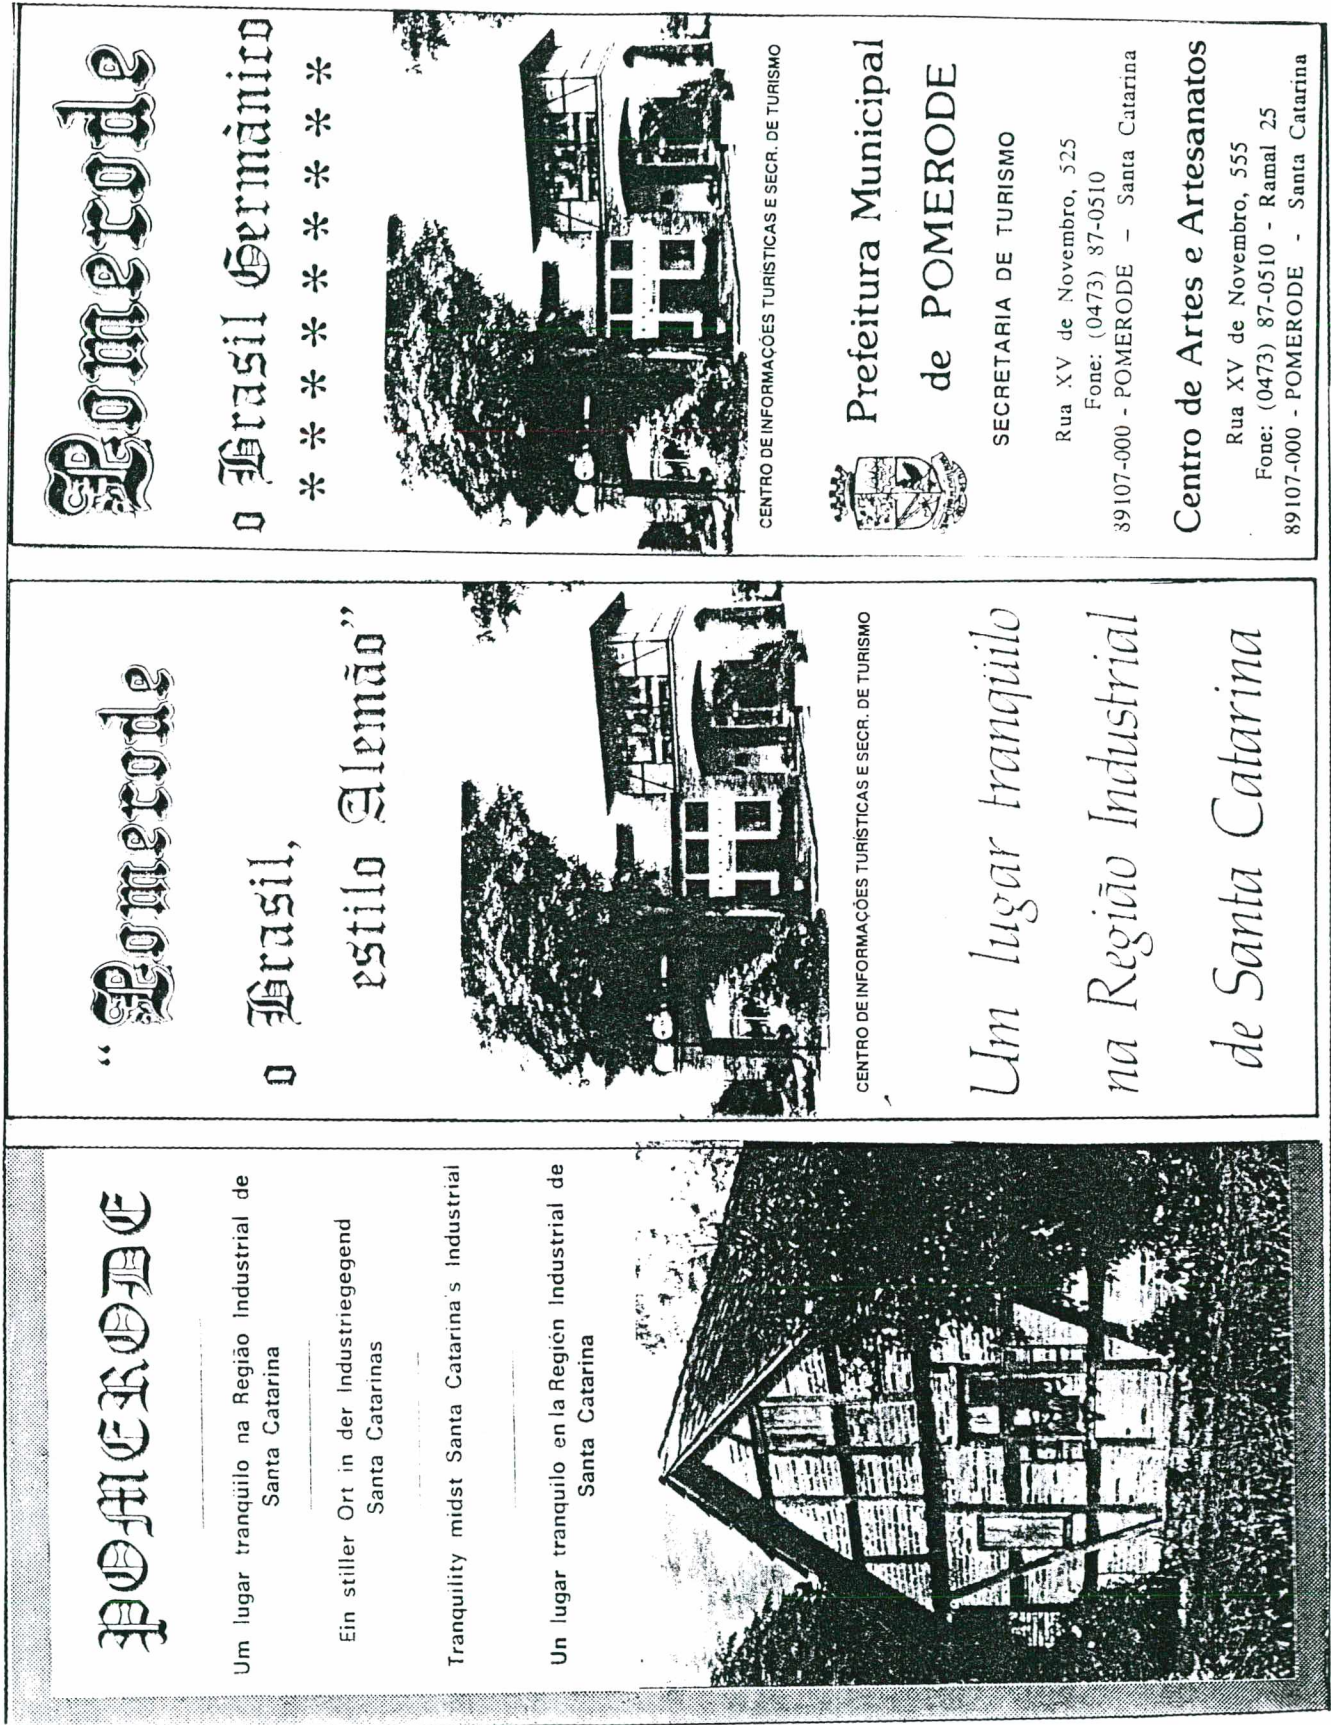 POMERODE
Um lugar tranquilo na Região Industrial de
Santa Catarina
Ein stiller Ort in der Industriegegend
Santa Catarinas
Tranquility midst Santa Catarina's Industrial
Un lugar tranquilo en la Región Industrial de
Santa Catarina
“Pomerode
o Brasil,
estilo Alemão”
CENTRO DE INFORMAÇÕES TURÍSTICAS E SECR. DE TURISMO
Um lugar tranqüilo
na Região Industrial
de Santa Catarina
Pomerode
o Brasil Germânico
* * * * * * * * *
CENTRO DE INFORMAÇÕES TURÍSTICAS E SECR. DE TURISMO
Prefeitura Municipal
de POMERODE
SECRETARIA DE TURISMO
Rua XV de Novembro, 525
Fone: (0473) 87-0510
89107-000 - POMERODE – Santa Catarina
Centro de Artes e Artesanatos
Rua XV de Novembro, 555
Fone: (0473) 87-0510 - Ramal 25
89107-000 - POMERODE - Santa Catarina